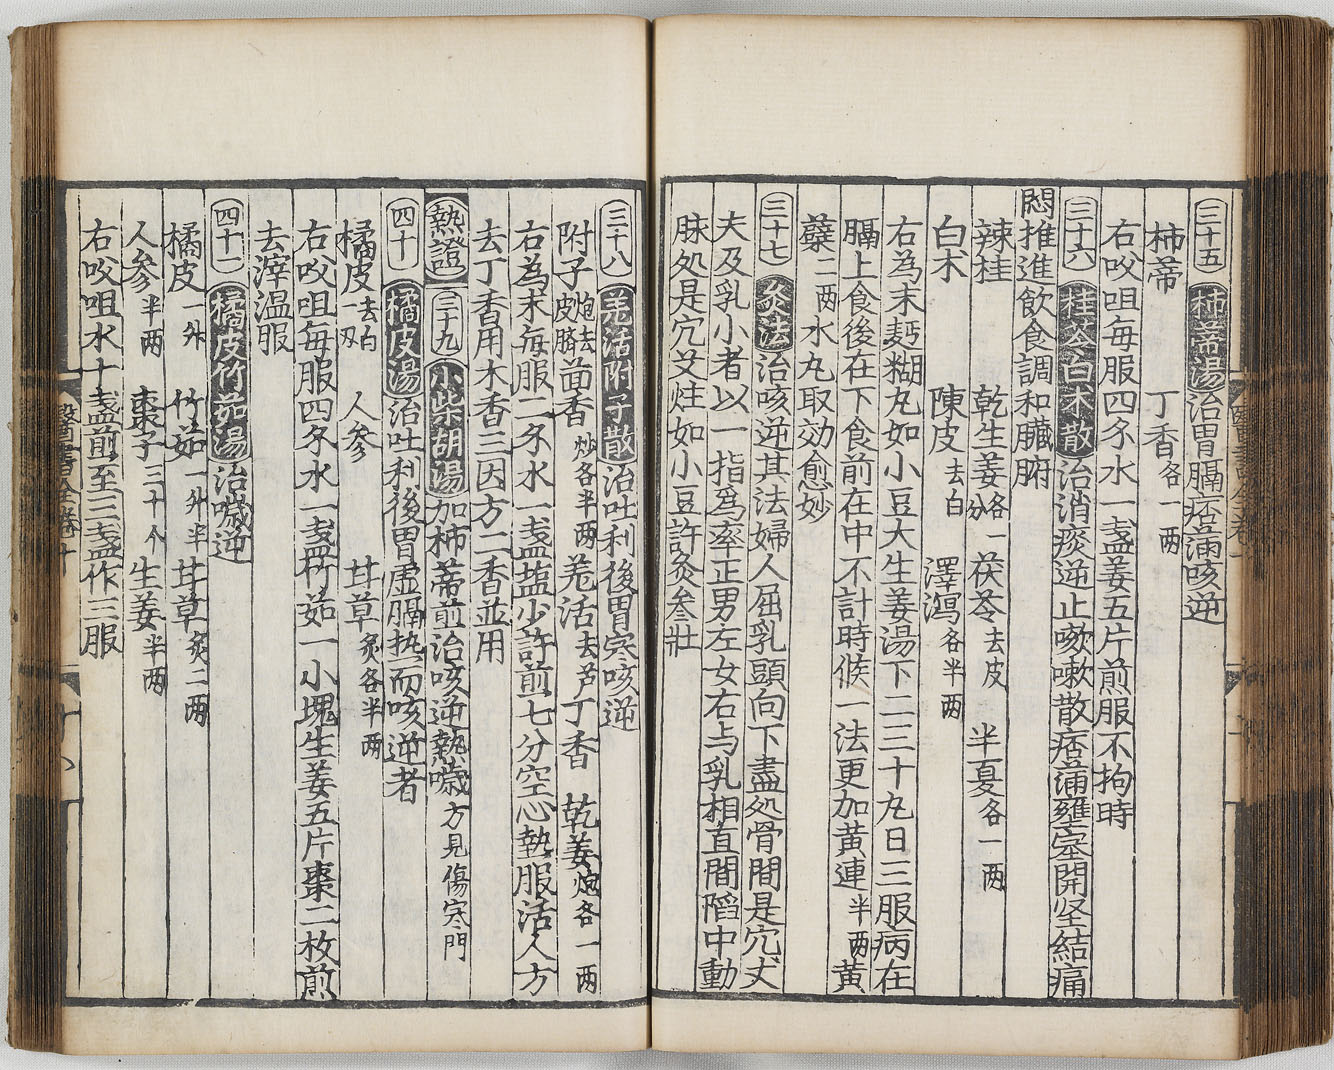 三十五 柿蒂湯 治胃膈痞滿咳逆
柿蒂 丁香各一两
右㕮咀每服四䥘水一盞姜五片煎服不拘時
三十六 桂苓白术散 治消痰逆止嗽嗽散痞滿壅塞開坚結痛
悶推進飲食調和臟腑
辣桂 乾生姜各一分 茯苓去皮 半夏各一两
白术 陳皮去白 澤瀉各半两
右為末麪糊丸如小豆大生姜湯下二三十丸日三服病在
膈上食後在下食前在中不計時候一法更加黃連半两黃
蘗二两水丸取効愈妙
三十七 灸法 治咳逆其法婦人屈乳頭向下盡処骨間是穴丈
夫及乳小者以一指爲率正男左女右与乳相直間陷中動
脉処是穴艾炷如小豆許灸叁壯
三十八 羌活附子散 治吐利後胃寒咳逆
附子炮去皮臍 茴香炒各半两 羌活去芦 丁香 乾姜炮各一两
右為末每服二䥘水一盞塩少許煎七分空心熱服活人方
去丁香用木香三因方二香並用
熱證 三十九 小柴胡湯 加柿蒂煎治咳逆熱噦方見傷寒門
四十 橘皮湯 治吐利後胃虛膈熱而咳逆者
橘皮去白一刄 人參 甘草炙各半两
右㕮咀每服四䥘水一盞竹茹一小塊生姜五片棗二枚煎
去滓温服
四十一 橘皮竹茹湯 治噦逆
橘皮一升 竹茹一升半 甘草炙二两
人參半两 棗子三十个 生姜半两
右㕮咀水十盞煎至三盞作三服